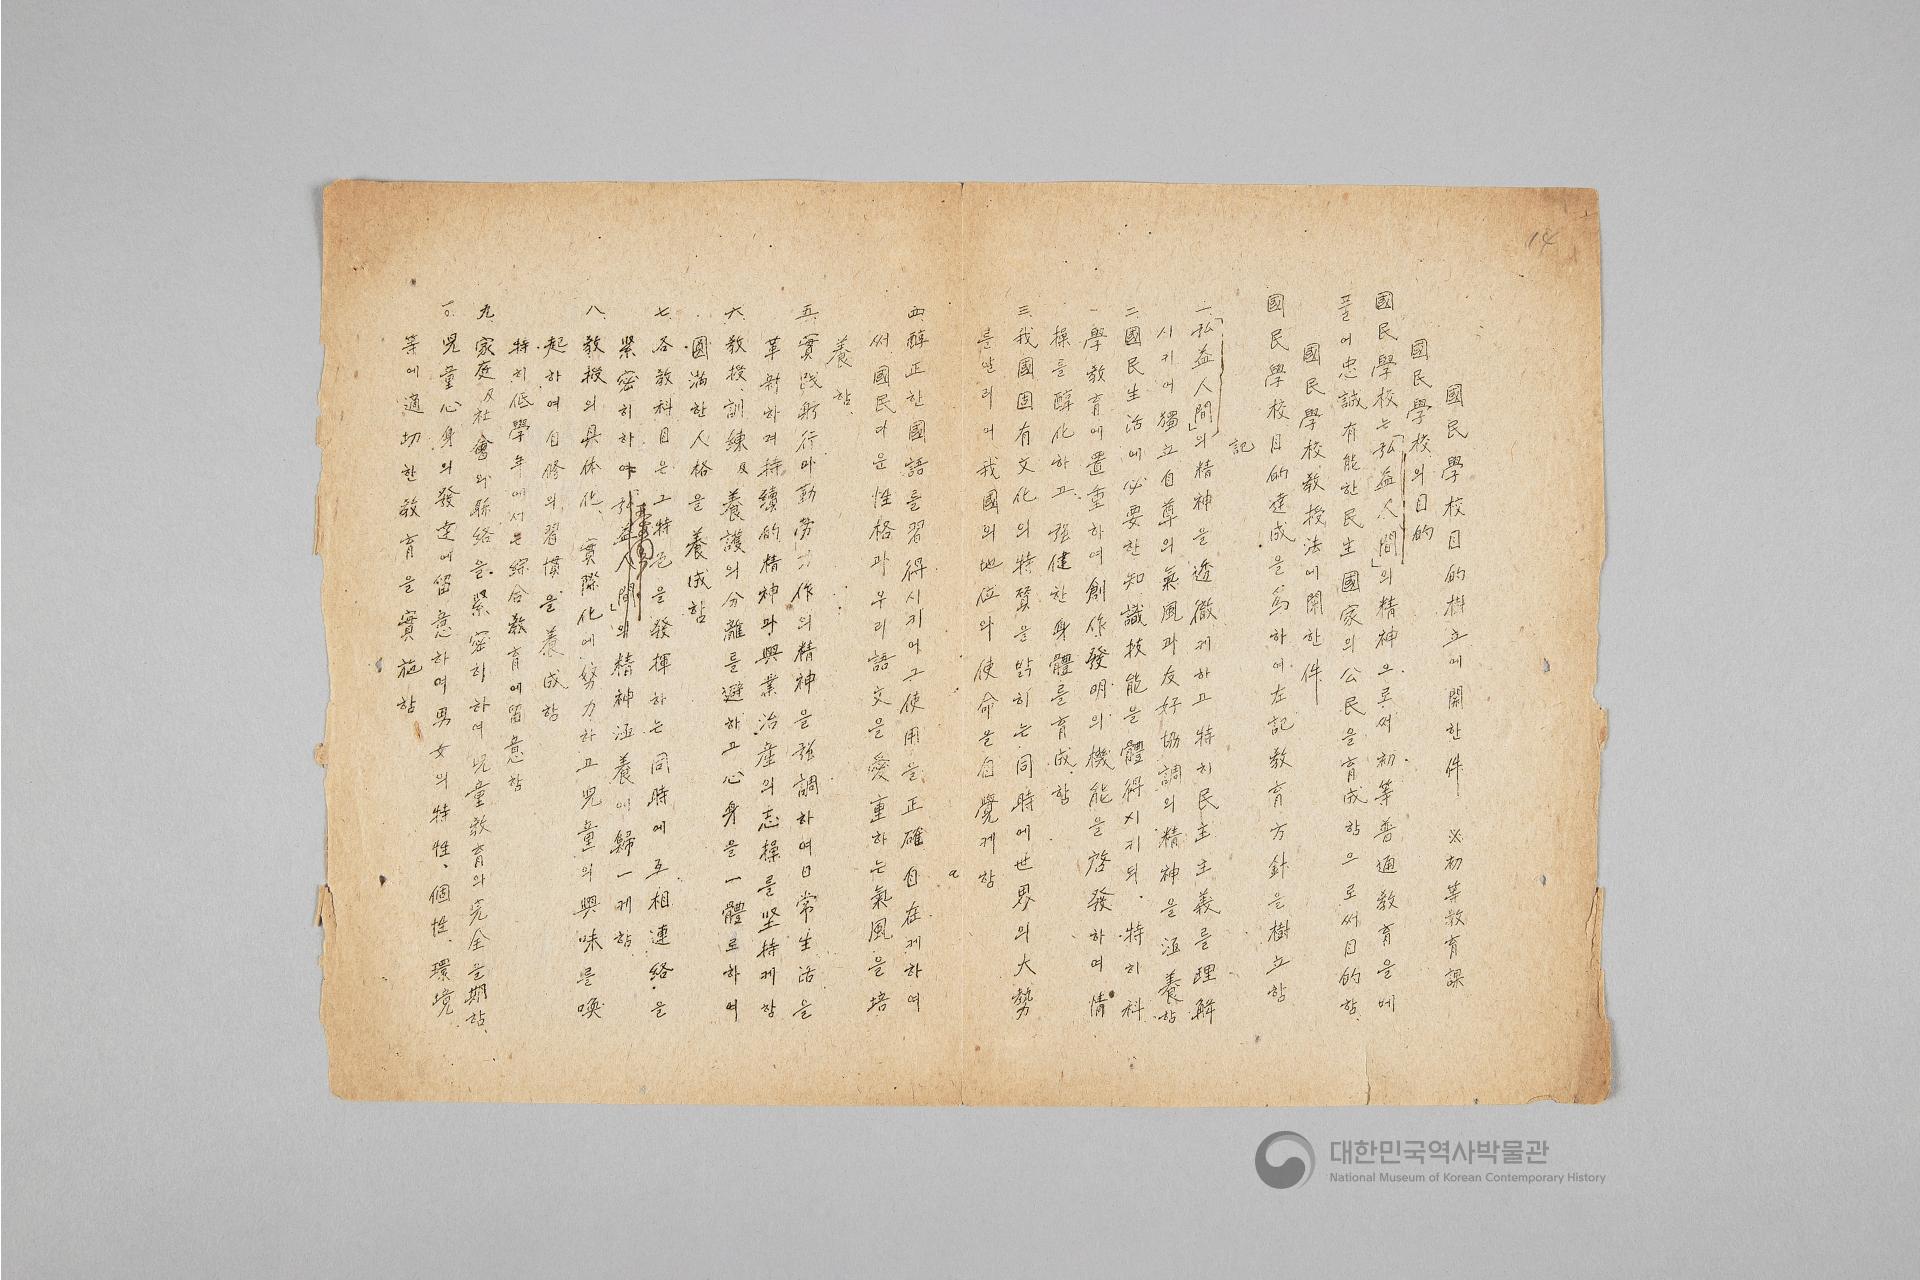 14
國民學校目的樹立에關한件 ※初等敎育課
國民學校의目的
國民學校는「弘益人間」의精神으로써初等普通敎育을베
풀어忠誠有能한民主國家의公民을育成함으로써目的함.
國民學校敎授法에關한件
國民學校目的達成을爲하여左記敎育方針을樹立함
記
一.「弘益人間」의精神을透徹케하고特히民主主義를理解
시키어獨立自尊의氣風과友好協調의精神을涵養함
二.國民生活에必要한知識技能을體得시키되.特히科
學敎育에置重하여創作發明의機能을啓發하며情
操를醇化하고.强健한身體를育成함
三.我國固有文化의特質을밝히는同時에世界의大勢
를살리어我國의地位와使命을自覺케함
四.醇正한國語를習得시키어그使用을正確自在케하여
써國民다운性格과우리語文을愛重하는氣風을培
養함.
五.實踐躬行과勤勞 作의精神을强調하여日常生活을
革新하게持續的精神과興業治産의志操를坚持케함
六.敎授.訓練及養護의分離를避하고心身을一體로하여
圓滿한人格을養成함
七.各敎科目은그特色을發揮하는同時에互相連絡을
緊密히하야「弘益人間」의精神涵養에歸一케함.
八.敎授의具体化、實際化에努力하고兒童의興味를喚
起하여自修의習慣을養成함
特히低學年에서는綜合敎育에留意함
九.家庭及社會의聯絡을.緊密히하여兒童敎育의完全을期함.
一〇.兒童心身의發達에留意하여男女의特性、個性、環境
等에適切한敎育을實施함
대한민국역사박물관
National Museum of Korean Contemporary History